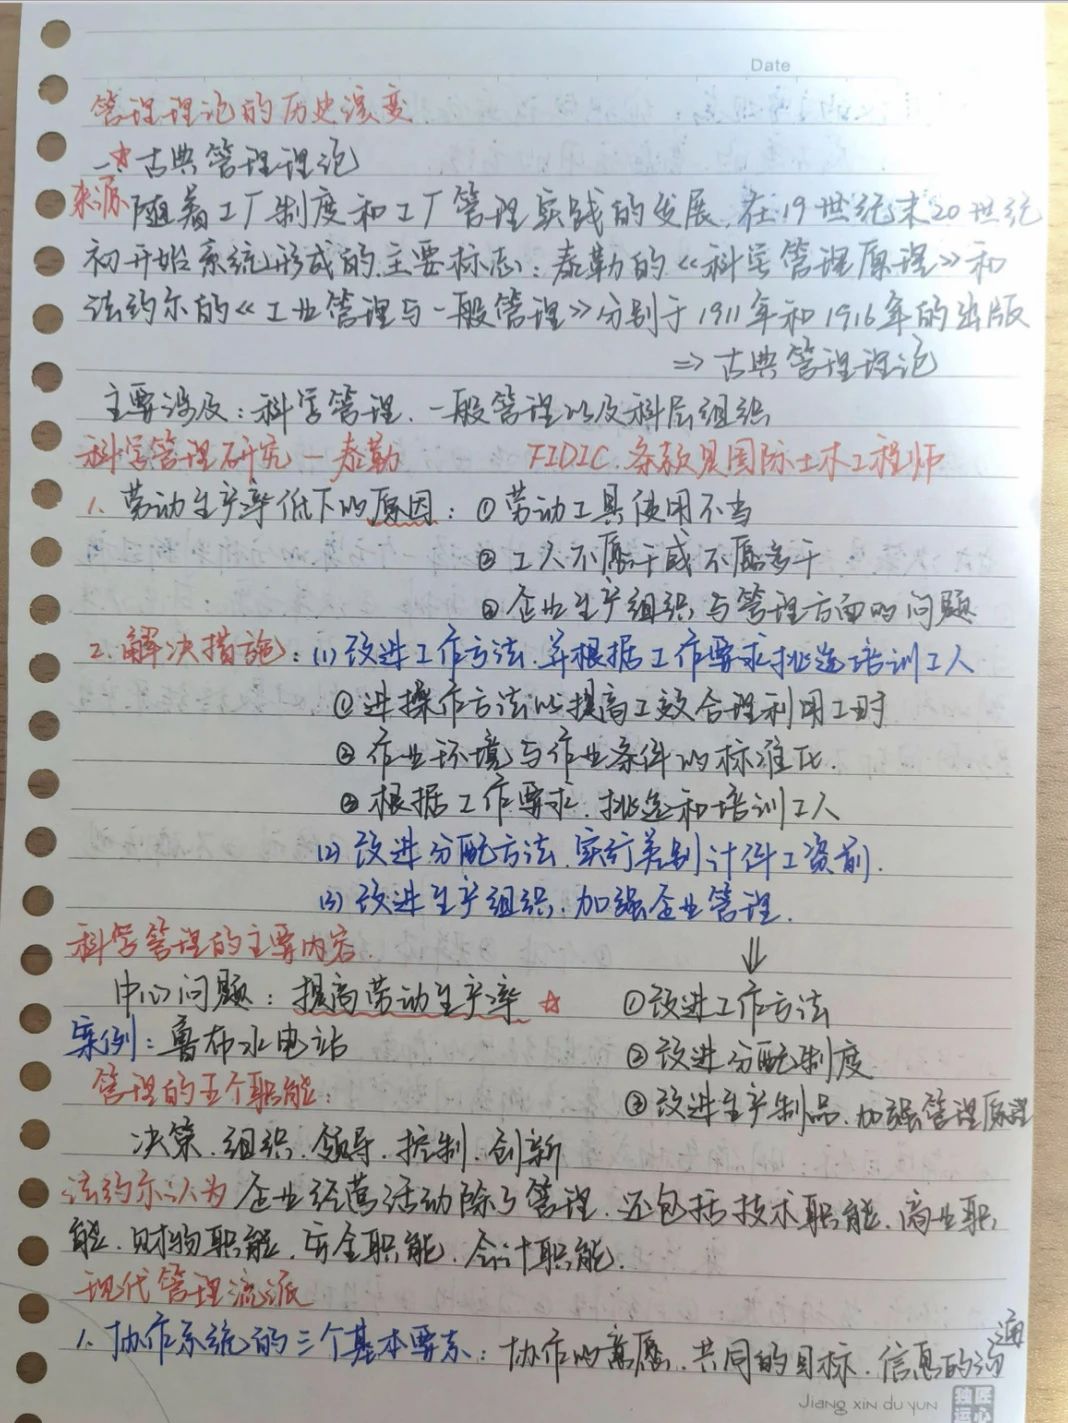 Date
管理理论的历史演变
一☆古典管理理论
来源 随着工厂制度和工厂管理实践的发展,在19世纪末20世纪
初开始系统形成的.主要标志:泰勒的《科学管理原理》和
法约尔的《工业管理与一般管理》分别于1911年和1916年的出版
⇒古典管理理论
主要涉及:科学管理.一般管理以及科层组织
科学管理研究—泰勒 FIDIC.条款是国际土木工程师
1.劳动生产率低下的原因:①劳动工具使用不当
②工人不愿干或不愿多干
③企业生产组织与管理方面的问题
2.解决措施:(1)改进工作方法.并根据工作要求挑选培训工人
①进操作方法以提高工效合理利用工时
②作业环境与作业条件的标准化.
③根据工作要求.挑选和培训工人
(2)改进分配方法.实行差别计件工资制.
(3)改进生产组织.加强企业管理.
科学管理的主要内容. ⇓
中心问题:提高劳动生产率☆ ①改进工作方法
案例:鲁布水电站 ②改进分配制度
管理的五个职能: ③改进生产制品.加强管理原理
决策.组织.领导.控制.创新
法约尔认为企业经营活动除了管理.还包括技术职能.商业职
能.财物职能.安全职能.会计职能.
现代管理流派
1.协作系统的三个基本要素:协作的意愿.共同的目标.信息的沟通
Jiang xin du yun
独匠
运心